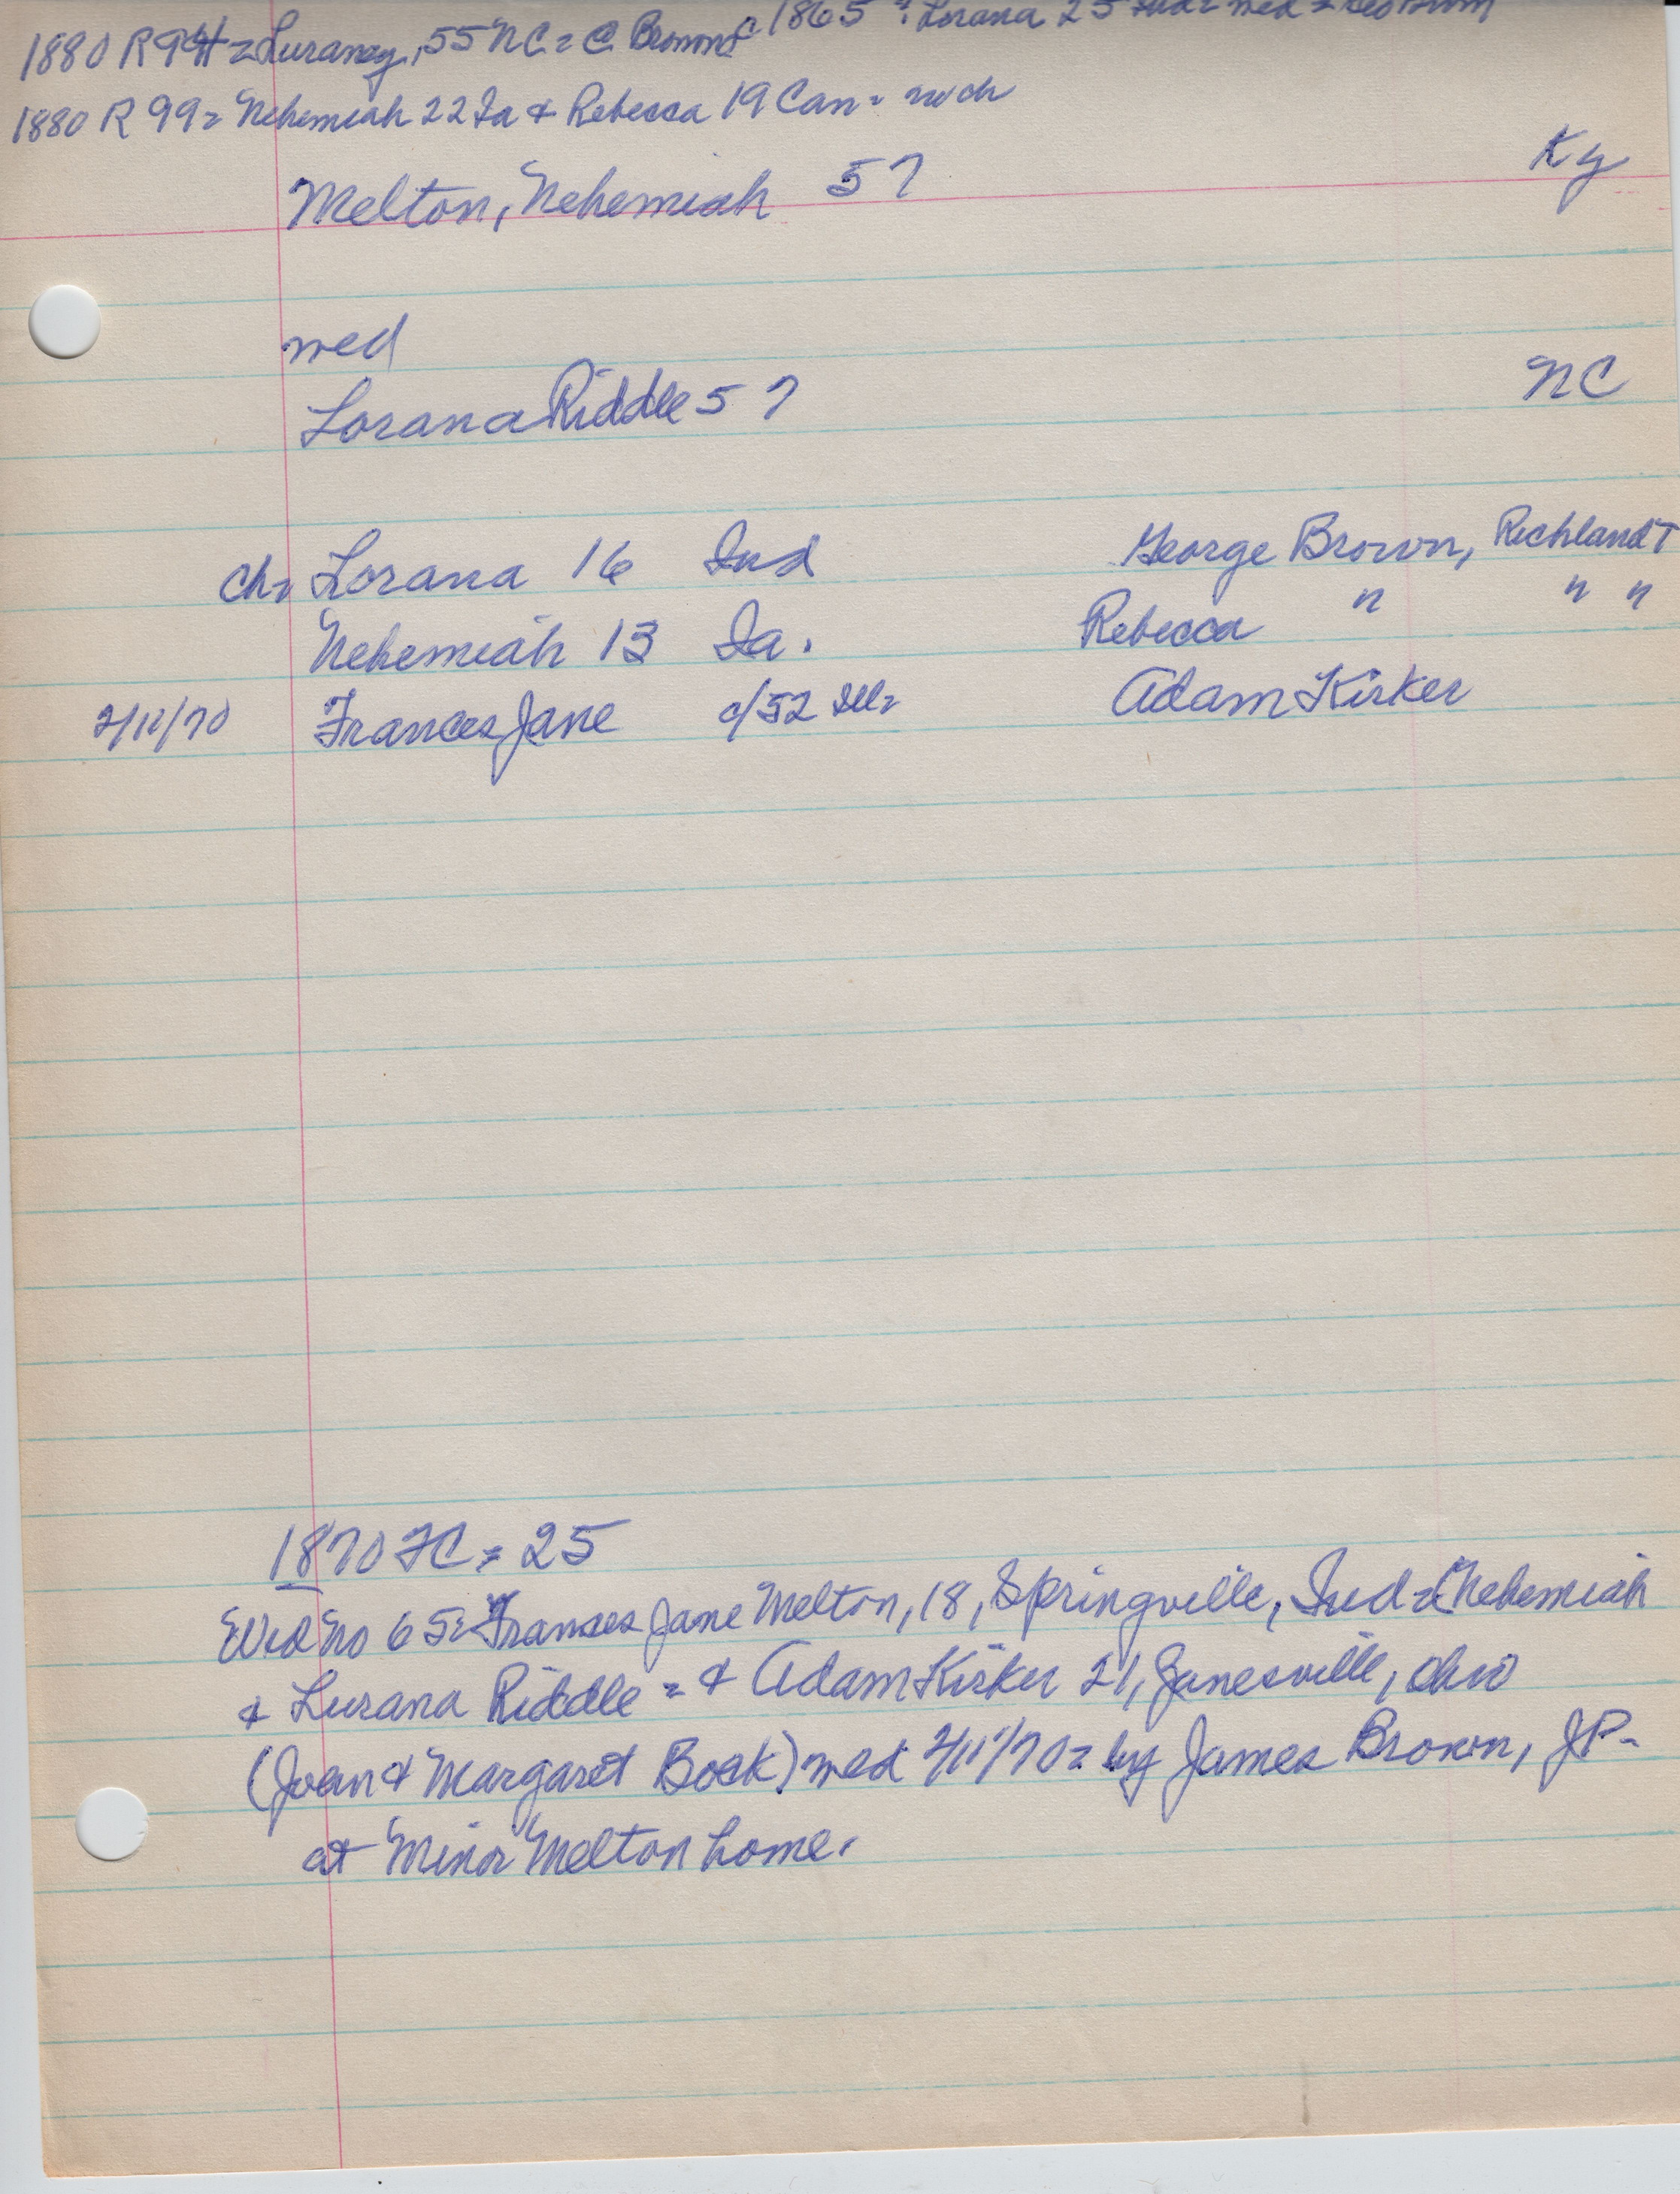 1880 R 94 = Luraney, 55 NC = C Brown c 1865 : Lorana 25 Ind = med = Geo Brown
1880 R 99 = Nehemiah 22 Ia & Rebecca 19 Can = no ch
Melton, Nehemiah 57 Ky
med
Lorana Riddle 57 NC
ch = Lorana 16 Ind George Brown, Richland T
Nehemiah 13 Ia. Rebecca " " "
2/11/70 Frances Jane c/52 Ill = Adam Kirker
1870 FC = 25
Wed No 65 = Frances Jane Melton, 18, Springville, Ind = (Nehemiah
& Lurana Riddle = & Adam Kirker 21, Janesville, Ohio
(Joan & Margaret Book) med 2/11/70 = by James Brown, JP -
at Minor Melton home.